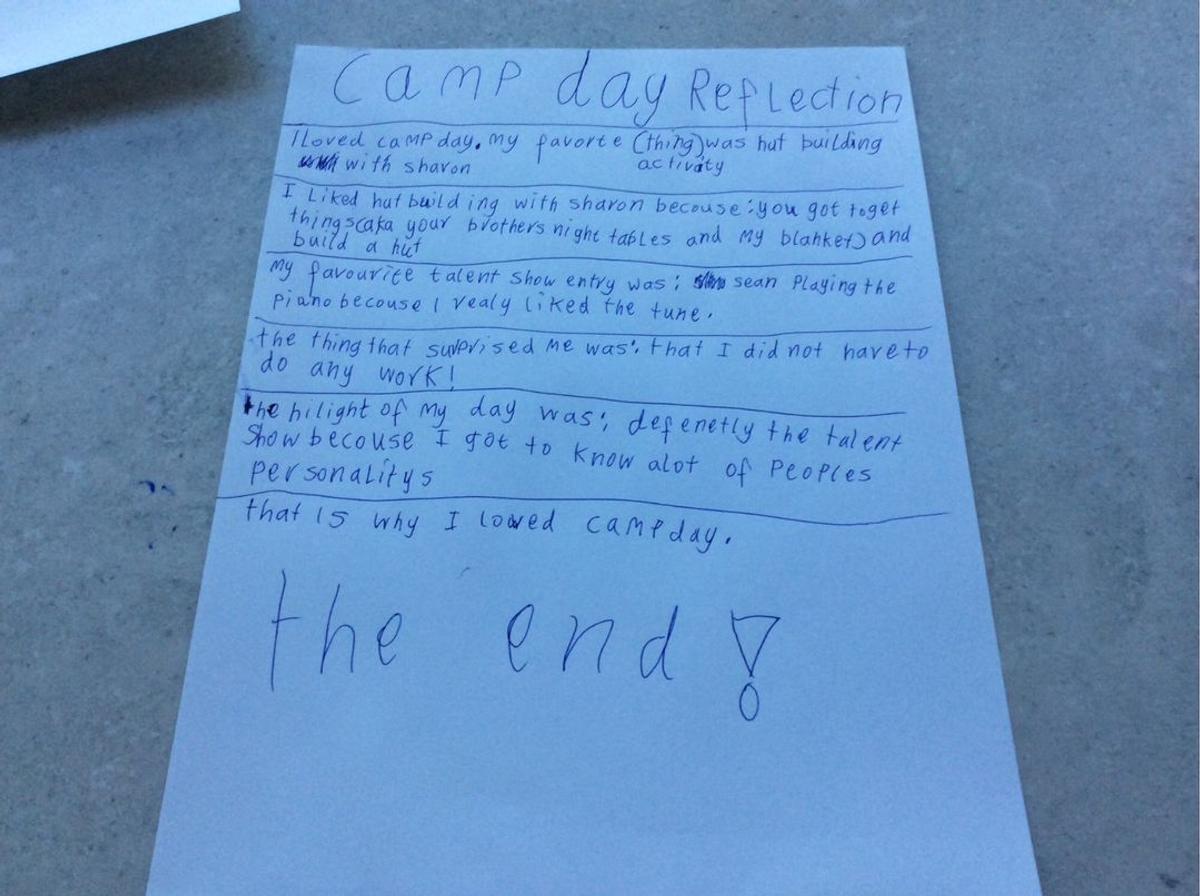 Camp day Reflection
I Loved camp day. my favorte (thing) was hut building
activity
with sharon
I Liked hut building with sharon becouse: you got to get
things (aka your brothers night tables and my blanket) and
build a hut
My favourite talent show entry was: sean Playing the
Piano becouse I realy liked the tune.
the thing that surprised me was: that I did not have to
do any work!
the hilight of my day was: defenetly the talent
Show becouse I got to know alot of Peoples
personalitys
that is why I loved camp day.
the end!